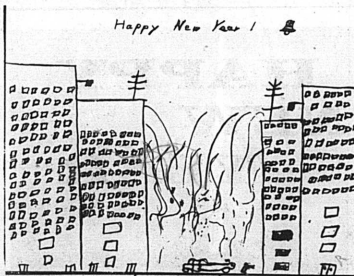 Happy New Year !